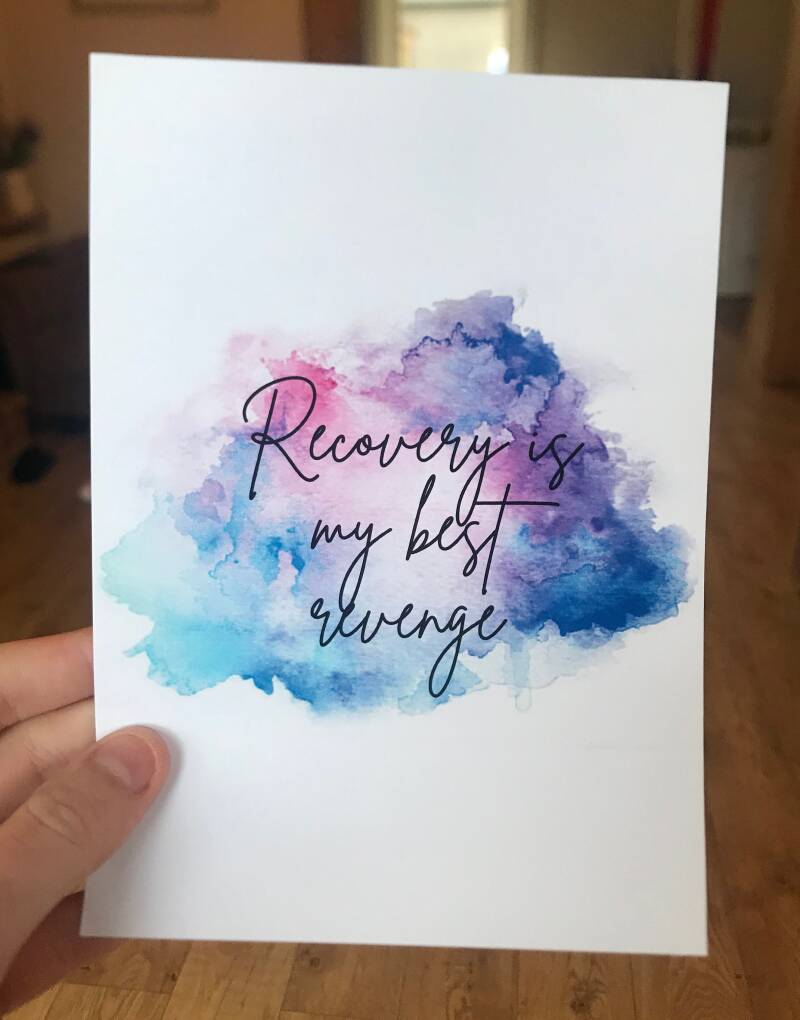 Recovery is
my best
revenge